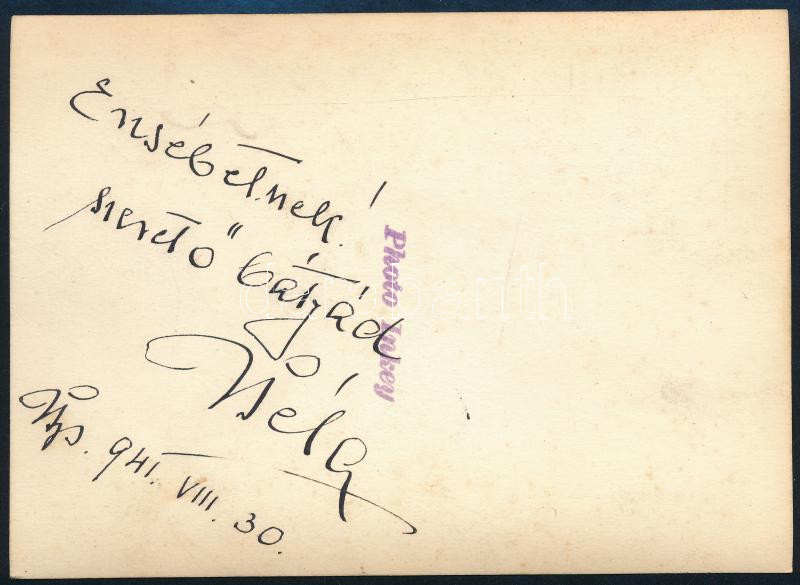 Erzsébetnek!
szerető bátyád
Béla
Bp. 941. VIII. 30.
Photo Inkey
darabanth